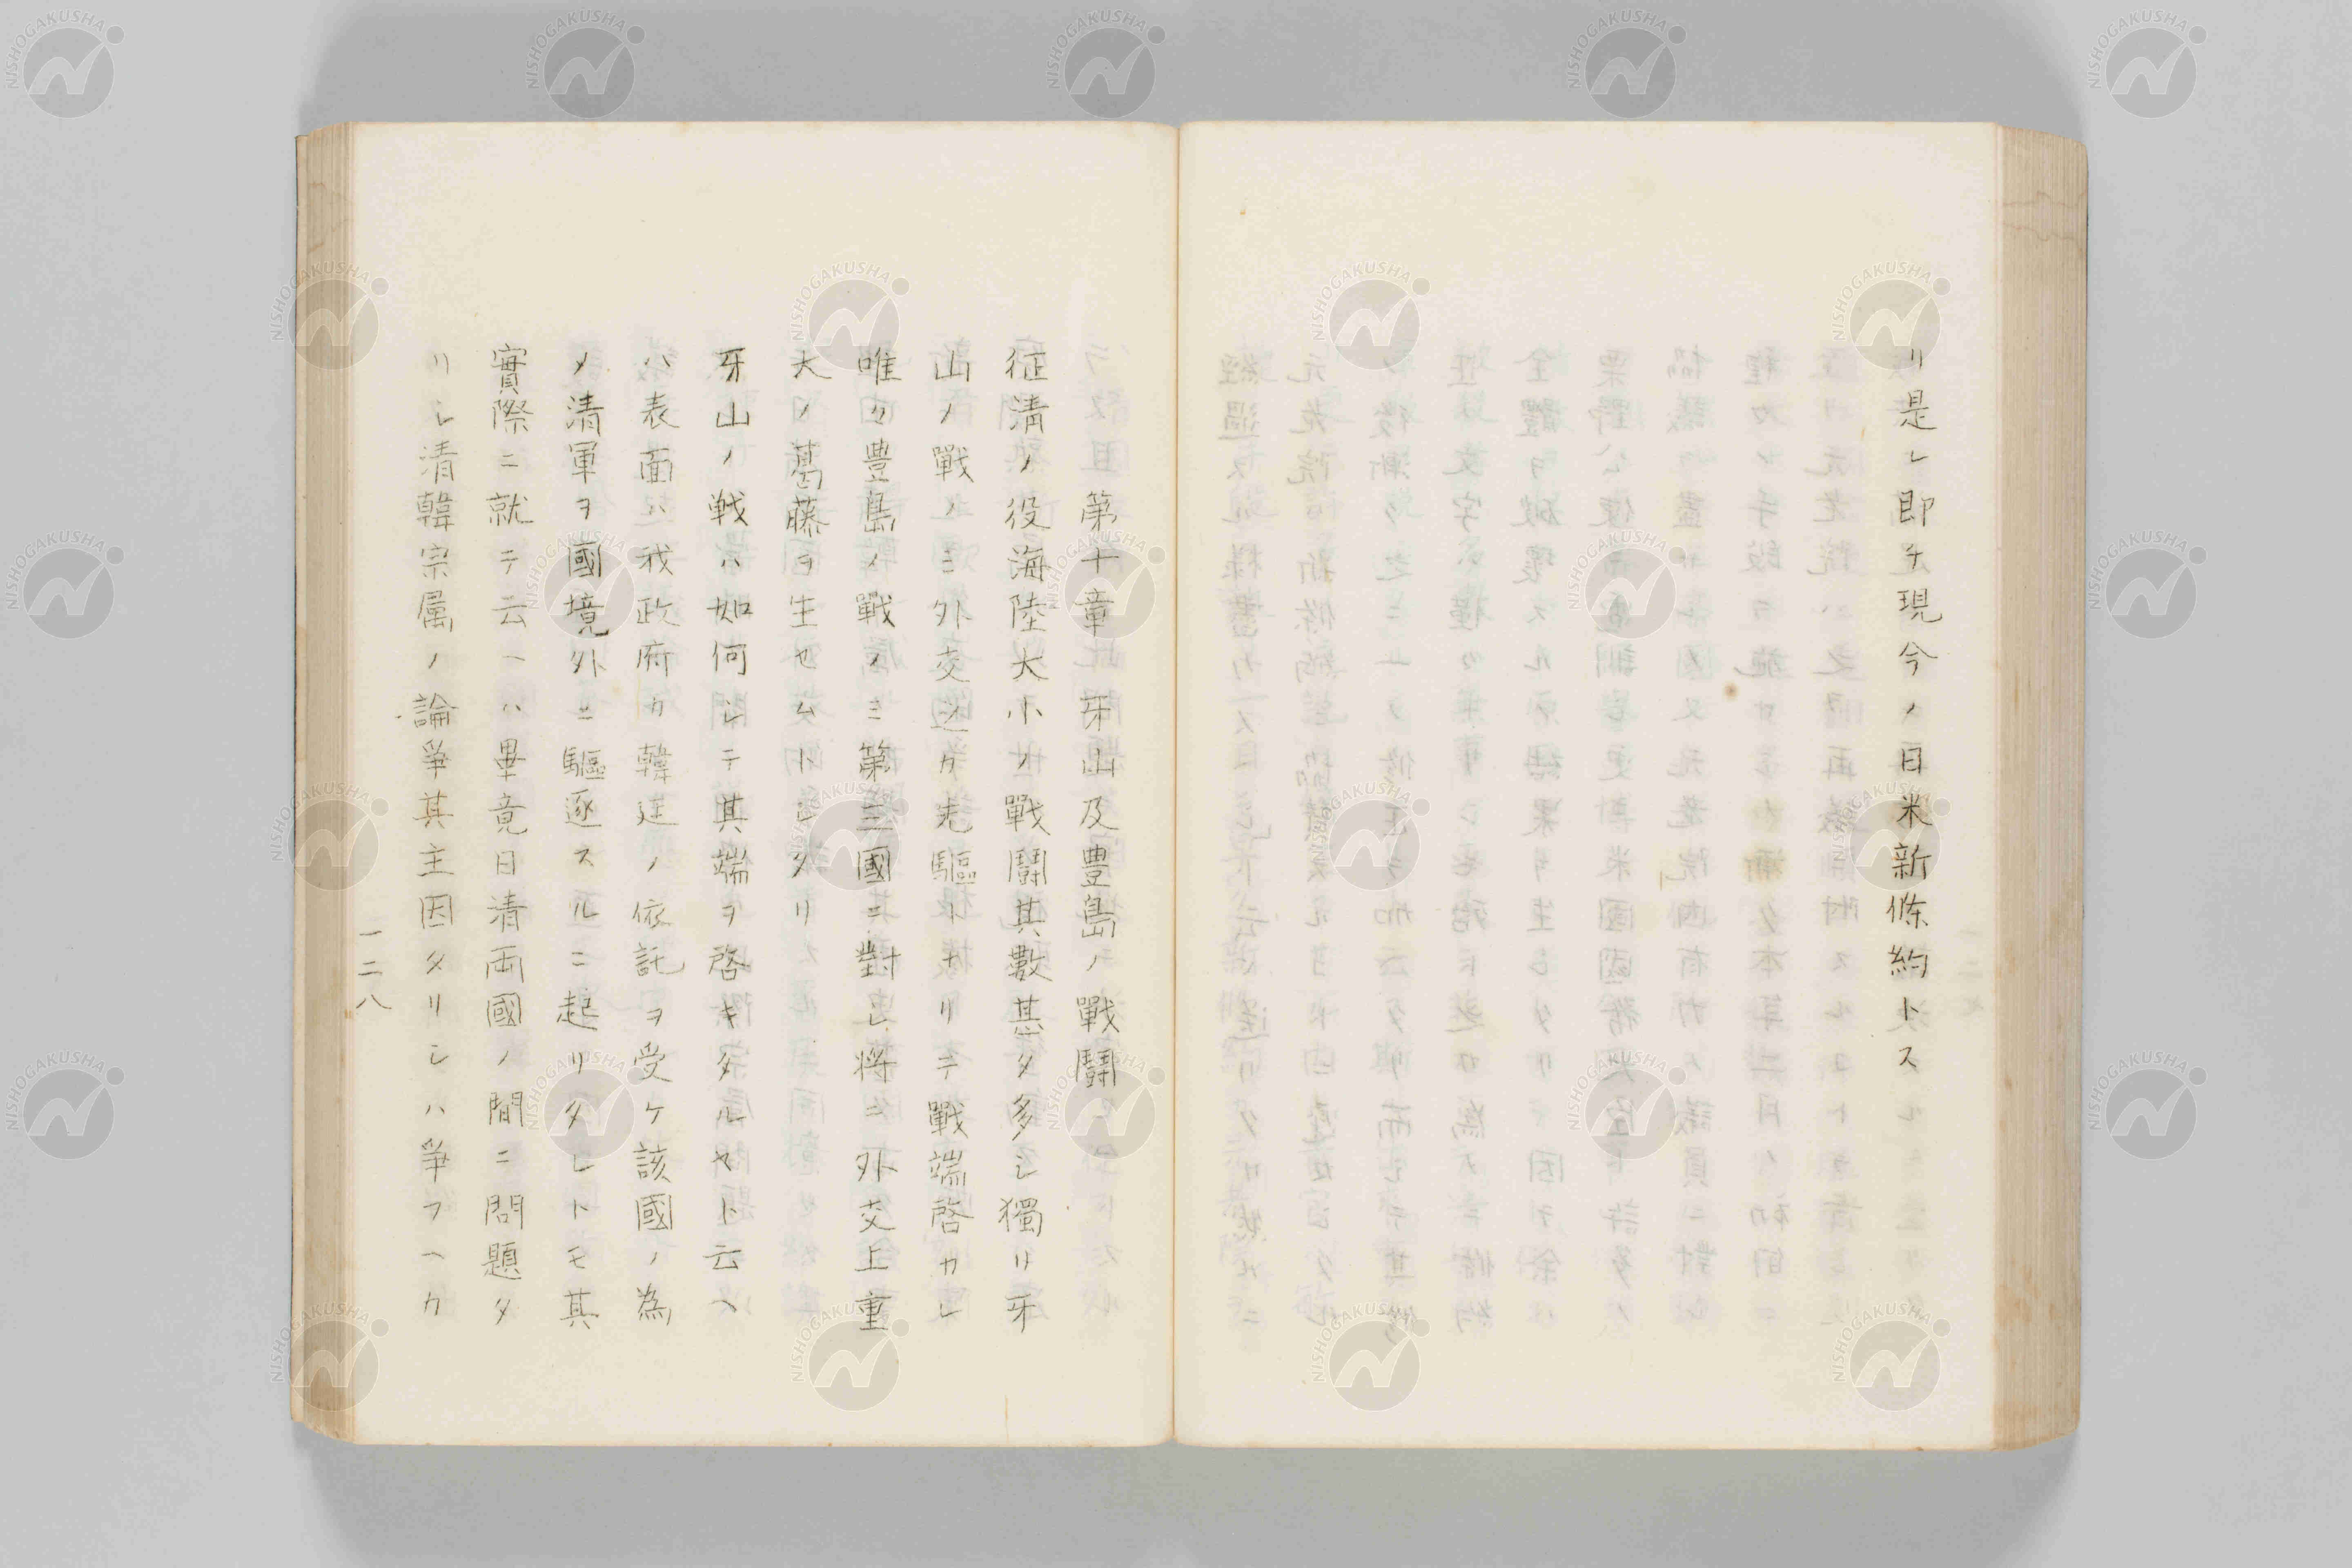 リ是レ即チ現今ノ日米新條約トス
第十章 牙山及豊島ノ戰鬪
征清ノ役海陸大小ノ戰鬪其數甚タ多シ獨リ牙
山ノ戰ノミ外交之カ先驅トナリテ戰端啓カレ
唯々豊島ノ戰ノミ第三國ニ對シ将ニ外交上重
大ノ葛藤ヲ生セムトシタリ
牙山ノ戦ハ如何シテ其端ヲ啓キタルヤト云ヘ
ハ表面ハ我政府カ韓廷ノ依託ヲ受ケ該國ノ為
メ清軍ヲ國境外ニ驅逐スルニ起リタレトモ其
實際ニ就テ云ヘハ畢竟日清両國ノ間ニ問題タ
リシ清韓宗属ノ論爭其主因タリシハ爭フヘカ
一二八
NISHOGAKUSHA